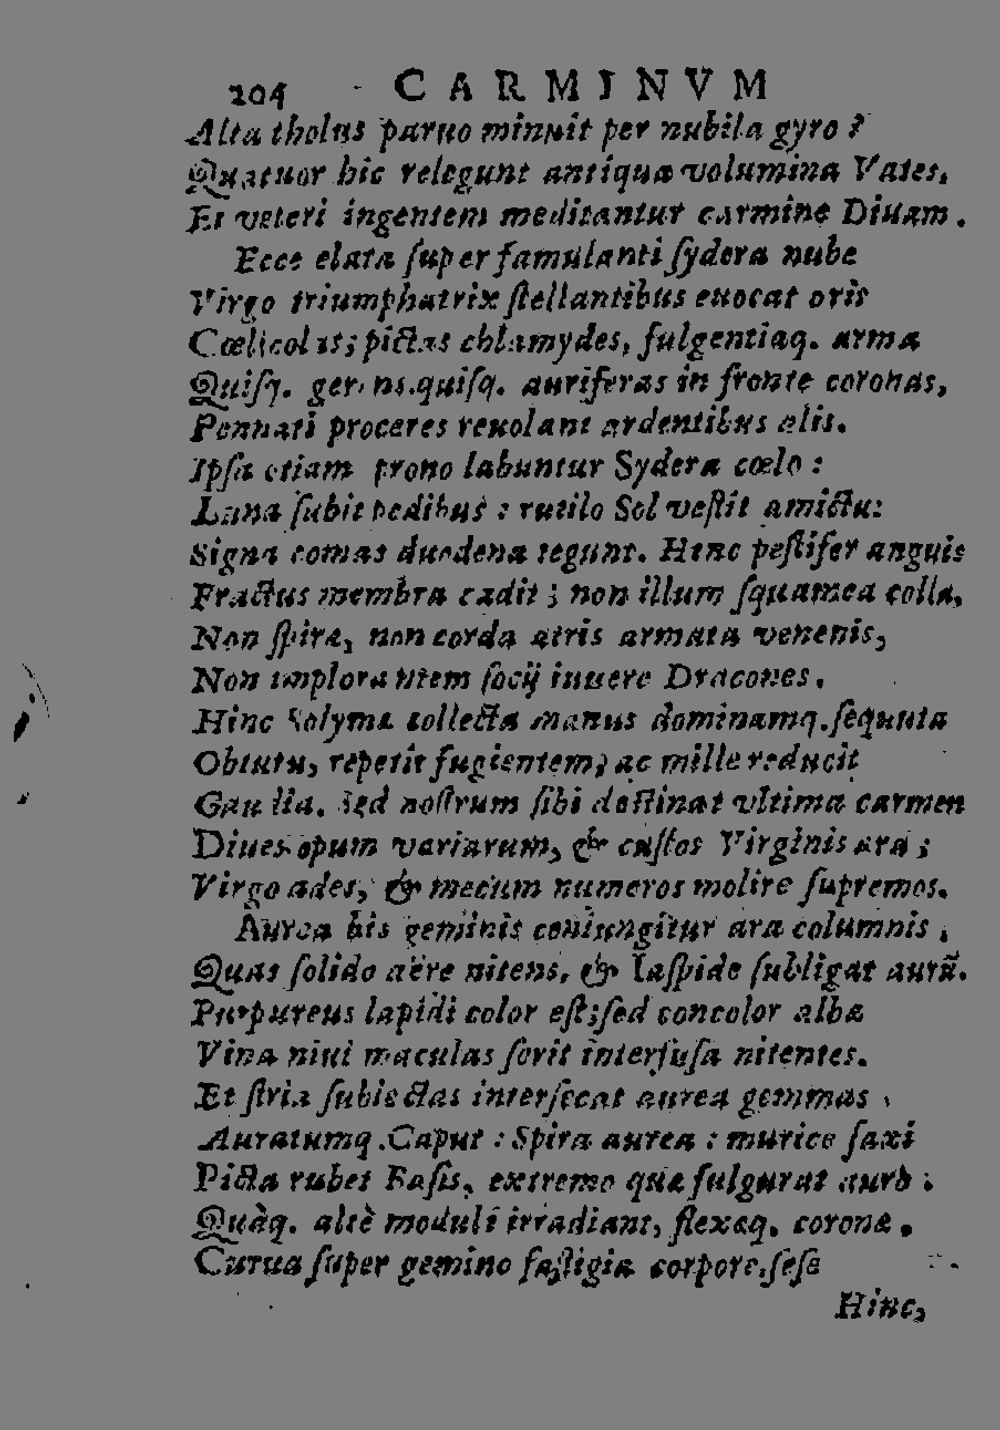 204 CARMINVM
Alta tholus paruo minuit per nubila gyro?
Quatuor hic relegunt antiqua volumina Vates,
Et veteri ingentem meditantur carmine Diuam.
Ecce elata ſuper famulanti ſydera nube
Virgo triumphatrix ſtellantibus euocat oris
Cœlicolas; pictas chlamydes, fulgentiaq. arma
Quiſq. gerens.quiſq. auriferas in fronte coronas,
Pennati proceres reuolant ardentibus alis.
Ipſa etiam prono labuntur Sydera cœlo:
Luna ſubit pedibus: rutilo Sol veſtit amictu:
Signa comas duodena tegunt. Hinc peſtifer anguis
Fractus membra cadit; non illum ſquamea colla,
Non ſpiræ, non corda atris armata venenis,
Non implorantem ſocij iuuere Dracones.
Hinc Solymæ collecta manus dominamq. ſequuta
Obtutu, repetit fugientem, ac mille reducit
Gaudia. Sed noſtrum ſibi deſtinat vltima carmen
Diues opum variarum, & cuſtos Virginis ara;
Virgo ades, & mecum numeros molire ſupremos.
Aurea bis geminis coniungitur ara columnis,
Quas ſolido aëre nitens, & Iaſpide ſubligat aurũ.
Purpureus lapidi color eſt; ſed concolor albæ
Vina niui maculas ſerit interfuſa nitentes.
Et ſtria ſubiectas interſecat aurea gemmas,
Auratumq. Caput: Spira aurea: murice ſaxi
Picta rubet Baſis, extremo quæ fulgurat auro:
Quàq. altè moduli irradiant, flexæq. coronæ.
Curua ſuper gemino faſtigia corpore ſeſe
Hinc,